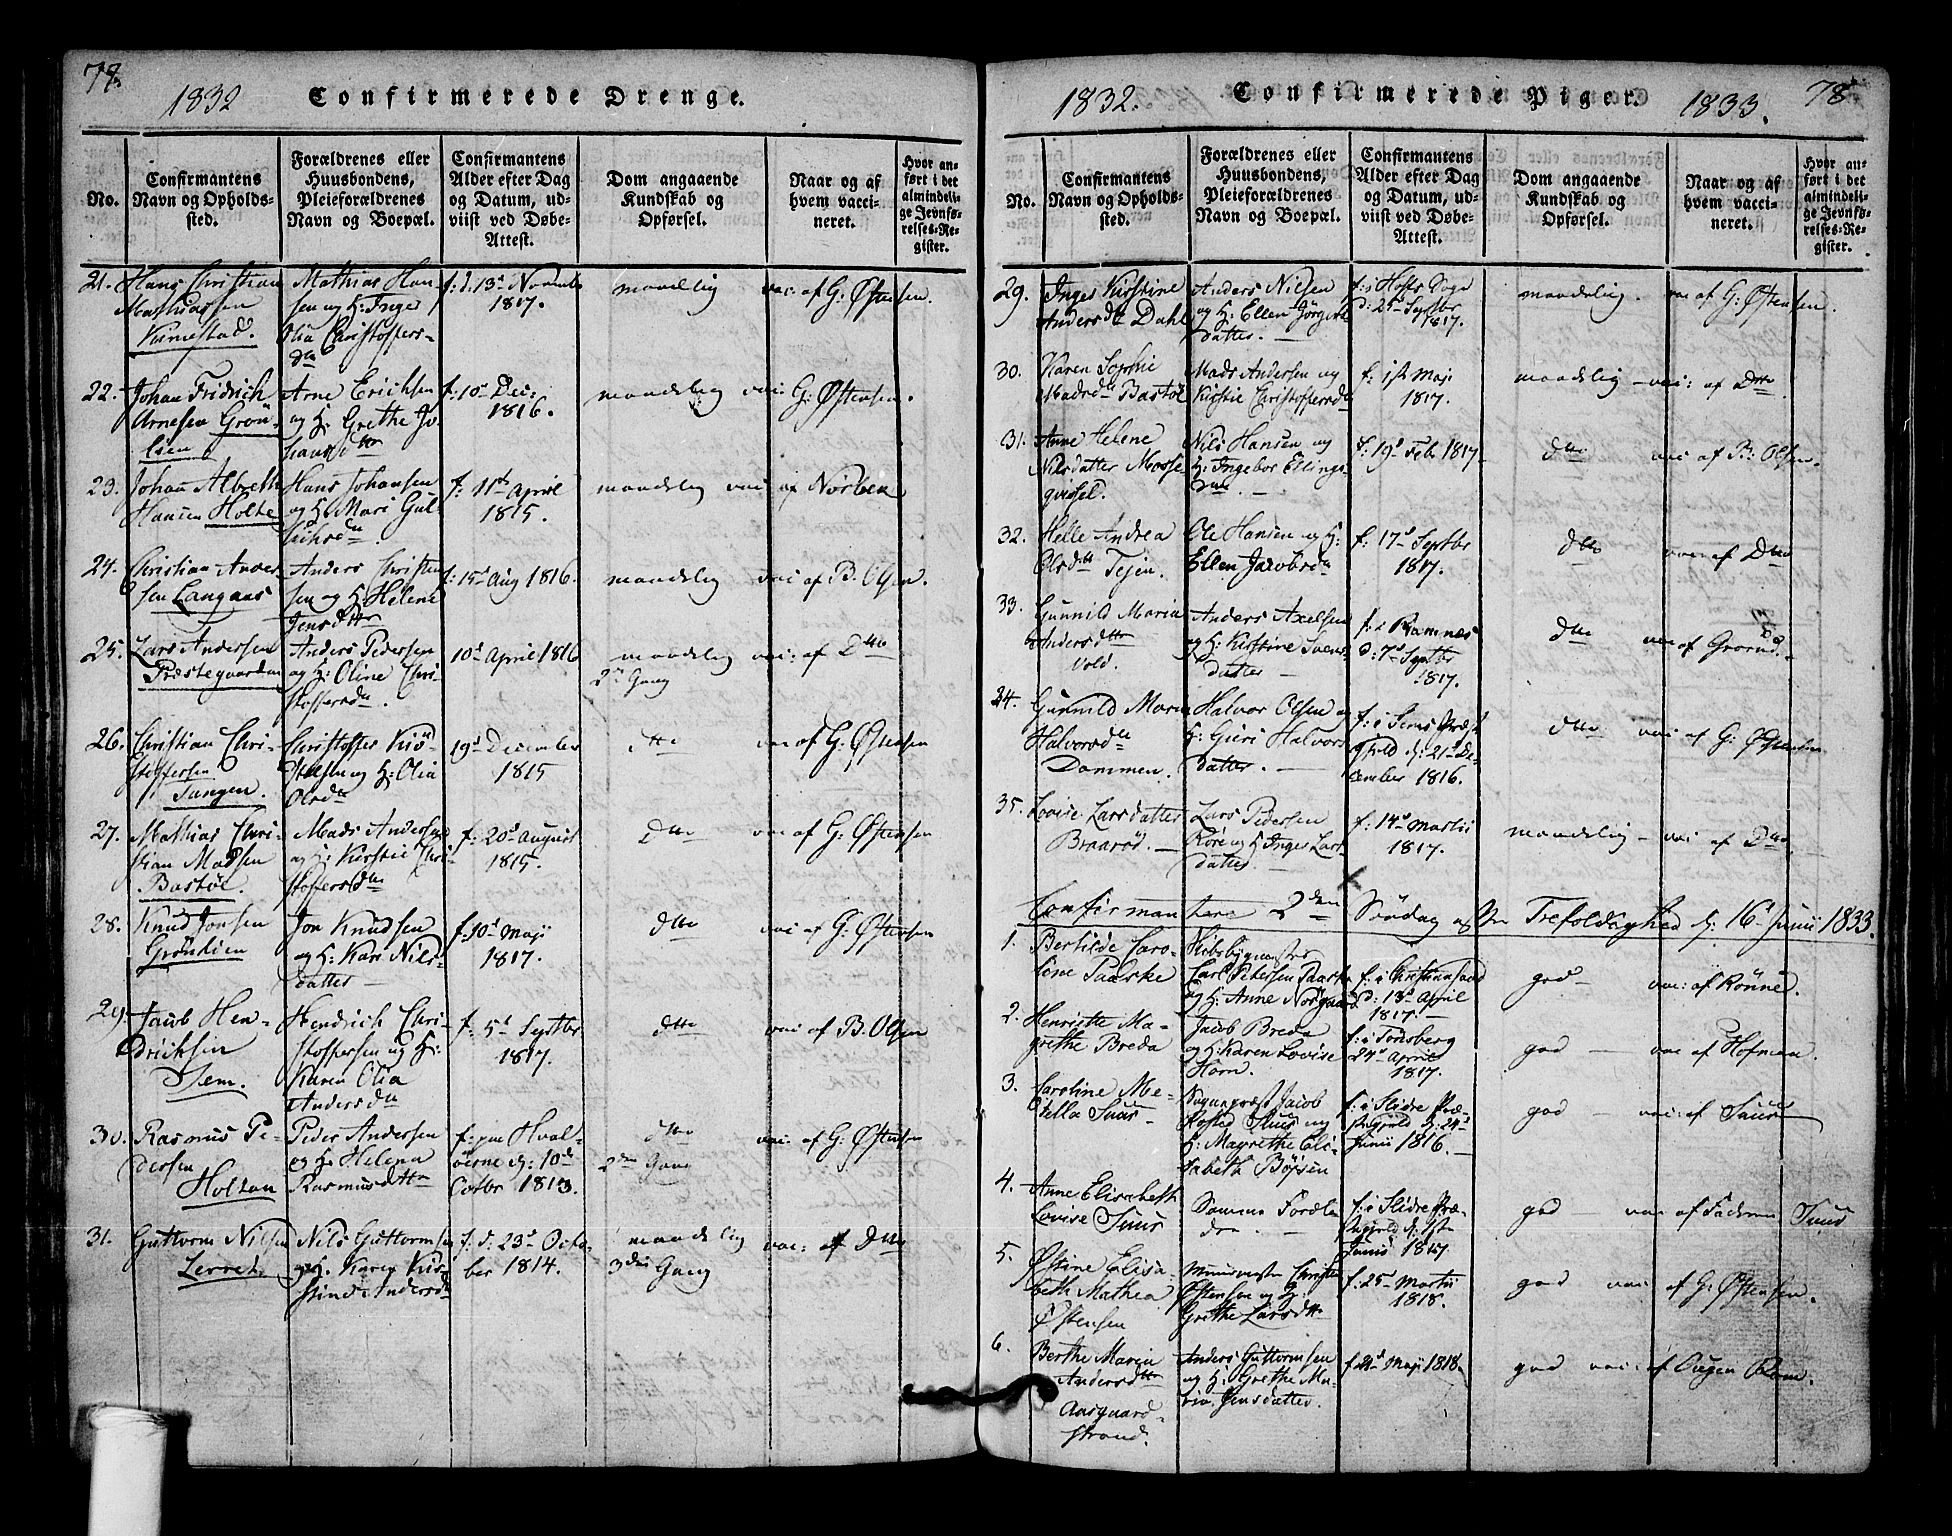 78.
1832
Confirmerede Drenge.
No.
Confirmantens
Navn og Opholds-
sted.
Forældrenes eller
Huusbondens,
Pleieforældrenes
Navn og Boepæl.
Confirmantens
Alder efter Dag
og Datum, ud-
viist ved Døbe-
Attest.
Dom angaaende
Kundskab og
Opførsel.
Naar og af
hvem vacci-
neret.
Hvor an-
ført i det
almindeli-
ge Jevnfø-
relses-Re-
gister.
21. Hans Christian
Mathiassen
Mathias Han-
sen og H: Inger
Olia Christoffers-
dtr
f: d. 13d Novembr
1817.
maadelig
vac: af G: Østensen.
22. Johan Fridrich
Arnesen Grön-
lien
Arne Erichsen
og H: Grethe Jo-
hansdttr
f: 10d Dec:
1816.
maadelig
vac: G: Østensen.
23. Johan Albreth
Hansen Holte
Hans Johansen
og H: Mari Gul-
f: 11te April
1815.
maadelig
vac: af Norbye
24. Christian Ander-
sen Langaas
Anders Christen-
sen og H: Helene
Jensdttr
f: 15d Aug 1816.
maadelig
vac: af B. Olsen.
25. Lars Andersen
Præstegaarden
Anders Pedersen
og H: Oline Chri-
stoffersdtr.
10d April 1816
maadelig
2den Gang
vac: af Dtto
26. Christian Chri-
stoffersen
Tangen.
Christoffer
og H: Olia
Olsdtr
19d December
1815
dtto
vac: af G: Østensen
27. Mathias Chri-
stian Madsen
Bastöe.
Mads Andersen
og H: Kirstie Chri-
stoffersdtr
f: 20d August
1815.
dtto
vac: af G: Østensen
28. Knud Jonsen
Grönlien
Jon Knudsen
og H: Kari Nils-
datter
f: 10d Maji
1817.
dtto
vac: af G: Østensen
29. Jacob Hen-
drichsen
Sem.
Hendrich Chri-
stoffersen og H:
Karen Olia
Andersdtr
f: 5d Septbr
1817.
dtto
vac: af B. Olsen
30. Rasmus Pe-
dersen
Holtan
Peder Andersen
og H: Helena
Rasmusdttr
f: paa Hval-
öerne d: 10de
Octbr 1813.
dtto
2den Gang
vac: af G: Østensen
31. Guttorm Nilsen
Nils Guttormsen
og H. Karen Kir-
stine Andersdtr
f: d: 23d Octo-
ber 1814.
maadelig
3die Gang
vac: af Dtto
1832.
Confirmerede Piger.
1833.
78
No.
Confirmantens
Navn og Opholds-
sted.
Forældrenes eller
Huusbondens,
Pleieforældrenes
Navn og Boepæl.
Confirmantens
Alder efter Dag
og Datum, ud-
viist ved Døbe-
Attest.
Dom angaaende
Kundskab og
Opførsel.
Naar og af
hvem vacci-
neret.
Hvor an-
ført i det
almindeli-
ge Jevnfø-
relses-Re-
gister.
29. Inger Kirstine
Andersdtr Dahl
Anders Nilsen
og H: Ellen Jörgens
datter. —
f: i
d: 21d Septbr
1817.
maadelig.
vac: af G: Østensen.
30. Karen Sophie
Madsdtr Bastöe
Mads Andersen og
Kirstie Christoffersdtr
f: 1ste Maji
1817.
maadelig
vac: af Dtto
31. Anne Helene
Nilsdatter
Nils Hansen og
H: Ingebor Ellings-
dtr. —
f: 19d Feb. 1817
dtto
vac: af B: Olsen.
32. Helle Andrea
Olsdtr Tejen.
Ole Hansen og H:
Ellen Jacobsdtr
f: 17d Septbr
1817.
dtto
vac: af Dtto
33. Gunnild Maria
Andersdttr
Vold.
Anders Axelsen
og H: Kirstine Svens-
datter —
f: i Ramnæs
d: 7d Septbr
1817.
dtto
vac: af
34. Gunnild Maria
Halvorsdtr
Dammen.
Halvor Olsen og
H: Guri Halvors
datter. —
f: i Sems Præst
gjeld d: 21d De-
cember 1816.
dtto
vac: af G: Østensen
35. Lovise Larsdatter
Braaröd.
Lars Pedersen
og H Inger Lars-
datter
f: 14d Martii
1817.
maadelig
vac: af Dtto
Confirmantere 2den Söndag efter Trefoldighed d: 16 Junii 1833.
1. Bertilde Caro-
line Paaske
Skibsbygmester
Carl Petersen Paaske
og H: Anne Norgaard
f: i Christianssand
d: 13d April
1817.
god —
vac: af Rönne.
2. Henriette Ma-
grethe Breda
Jacob Breda
og H: Karen Lovise
Horn.
f: i Tönsberg
24d April
1817.
god —
vac: af Hofman.
3. Caroline Me-
tella Suur
Sognepræst Jacob
Rosted Suur og
H: Magrethe Eli-
sabeth Böysen
f: i Slidre Præ-
stegjeld d: 24d
Junii 1816.
god —
vac: af Suur
4. Anne Elisabeth
Lovise Suur
Samme Foræld-
re —
f: i Slidre Præ-
stegjeld d: 1ste
Junii 1817.
god —
vac: af Faderen Suur
5. Østine Elisa-
beth Mathea
Østensen
Christen
Østensen og H:
Grethe Larsdttr
f: 25 Martii
1818.
god
vac: af G: Østensen.
6. Berthe Maria
Andersdttr
Aasgaard-
strand.
Anders Guttormsen
og H: Grethe Ma-
ria Jensdatter.
f: 21d Maji 1818.
god
vac: af